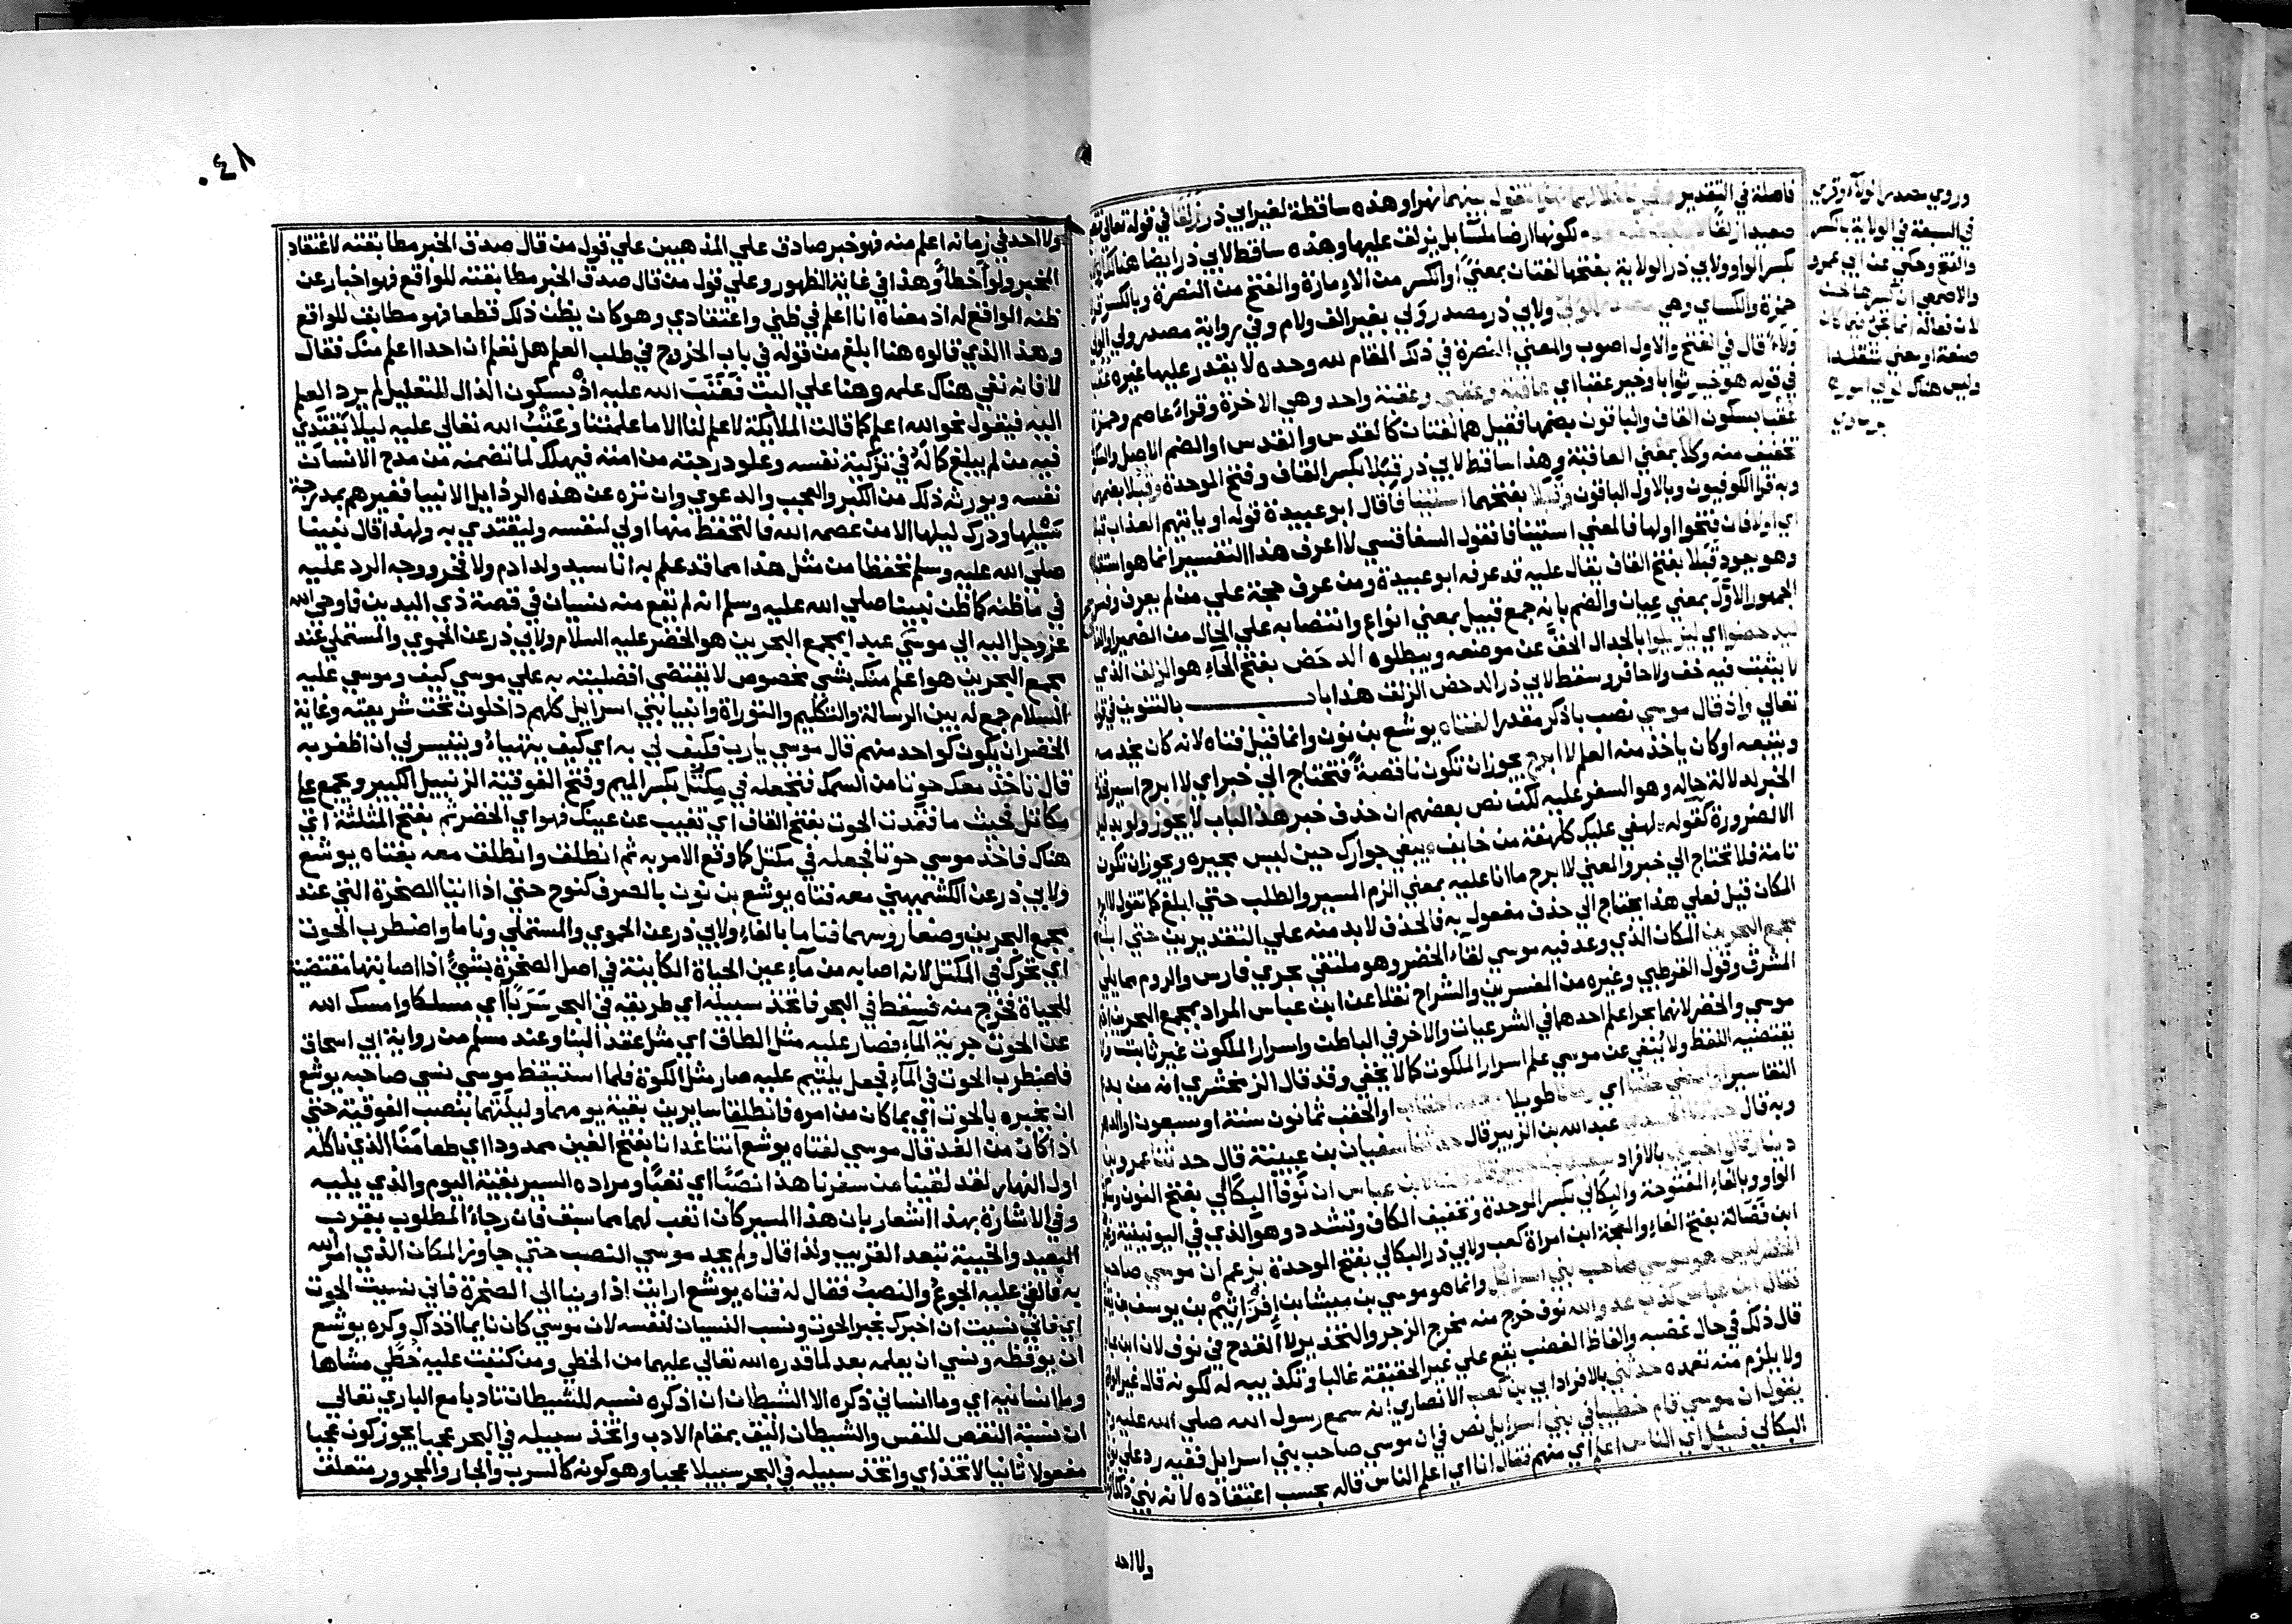 فاصلة في التقدير بينهما نهرا وهذه ساقطة لغير ابي ذر زلقا في قوله تعالي
صعيدا زلقا لكونها ارضا ملسا بل يزلف عليها وهذه ساقط لابي ذر ايضا هنالك
بكسر الواو ولابي ذر الولاية بفتحها لغتان بمعني او الكسر من الامارة والفتح من النصرة وبالكسر
حمزة والكساي وهي ولابي ذر مصدر ولي بغير الف ولام وفي رواية مصدر ولي الولي
ولاء قال في الفتح والاول اصوب والمعني النصرة في ذلك المقام لله وحده لا يقدر عليها غيره
في قوله هو خير ثوابا وخير عقبا اي عاقبة وعقبي وعقبة واحد وهي الاخرة وقراء عاصم وحمزة
عقبا بسكون القاف والباقون بضمها فقيل هما لغتان كالقدس والقدس او الضم الاصل
تخفيف منه وكلا بمعني العاقبة وهذا ساقط لابي ذر قبلا بكسر القاف وفتح الموحدة وقبلا بضمها
وبه قرا الكوفيون وبالاول الباقون وقبلا بفتحهما استينافا قال ابو عبيدة قوله او ياتيهم العذاب قبلا
اي اولا فان فتحوا اولها فالمعني استينافا فقول السفاقسي لا اعرف هذا التفسير انما هو
وهو يجود قبلا بفتح القاف يقال عليه قد عرفه ابو عبيدة ومن عرف حجة علي من لم يعرف
الجمهور الاول بمعني عيان والضم بانه جمع قبيل بمعني انواع وانتصابه علي الحال من الضمير
ليدحضوا اي ليزيلوا بالجدال الحق عن موضعه ويبطلوه الدحض بفتح الحاء هو الزلف الذي
لا يثبت فيه خف ولا حافر وسقط لابي ذر الدحض الزلف هذا باب بالتنوين في
تعالي واذ قال موسي نصب باذكر مقدرا لفتاه يوشع بن نون وانما قيل فتاه لانه كان يخدمه
ويتبعه او كان ياخذ منه العلم لا ابرح يجوز ان تكون ناقصة فتحتاج الي خبر اي لا ابرح اسير
الخبر لدلالة حاله وهو السفر عليه لكن نص بعضهم ان حذف خبر هذا الباب لا يجوز ولو بدليل
الا لضرورة كقوله لهفي عليك كلهفة من خايف يبغي جوارك حين ليس بجيره ويجوز ان تكون
تامة فلا تحتاج الي خبر والمعني لا ابرح ما انا عليه بمعني الزم المسير والطلب حتي ابلغ كما تقول لا ابرح
المكان قيل فعلي هذا يحتاج الي حذف مفعول به فالحذف لابد منه علي التقديرين حتي ابلغ
مجمع البحرين المكان الذي وعد فيه موسي لقاء الخضر وهو ملتقي بحري فارس والروم مما يلي
المشرق وقول القرطبي وغيره من المفسرين والشراح نقلا عن ابن عباس المراد بمجمع البحرين
موسي والخضر لانهما بحرا علم احدهما في الشرعيات والاخر في الباطن واسرار الملكوت غير ثابت
يقتضيه اللفظ ولا يُنفي عن موسي علم اسرار الملكوت كما لا يخفي وقد قال الزمخشري انه من بدع
التفاسير او امضي حقبا اي زمانا طويلا او الحقب ثمانون سنة او سبعون
وبه قال عبد الله بن الزبير قال حدثنا سفيان بن عيينة قال حدثنا عمرو بن
دينار قال اخبرني بالافراد سعيد بن جبير لابن عباس ان نوفا البكالي بفتح النون
الواو وبالفاء المفتوحة والبكالي بكسر الموحدة وتخفيف الكاف وتشدد وهو الذي في اليونينية
ابن فضالة بفتح الفاء والمعجمة ابن امراة كعب ولابي ذر البكالي بفتح الموحدة يزعم ان موسي صاحب
الخضر ليس هو موسي صاحب بني اسرايل وانما هو موسي بن ميشا بن افراثيم بن يوسف
فقال ابن عباس كذب عدو الله نوف خرج منه مخرج الزجر والتحذير لا القدح في نوف لان ابن
قال ذلك في حال غضبه والفاظ الغضب يقع علي غير الحقيقة غالبا وتكذيبه له لكونه قال غير
ولا يلزم منه تعمده حدثني بالافراد ابي بن كعب الانصاري انه سمع رسول الله صلي الله عليه
يقول ان موسي قام خطيبا في بني اسرايل نص في ان موسي صاحب بني اسرايل ففيه رد علي
البكالي فسئل اي الناس اعلم اي منهم فقال انا اي اعلم الناس قاله بحسب اعتقاده لانه نبي
ولا احد
وروي مصدر الولاء وقري
في السبعة في الولاية بالكسر
والفتح وحكي عن ابي عمرو
والاصمعي ان كسرها لحن
لان فعالة انما تجي فيما كان
صنعة او معني متقلدا
وليس هناك تولي امور
٠٤٨
ولا احد في زمانه اعلم منه فهو خبر صادق علي المذهبين علي قول من قال صدق الخبر مطابقته لاعتقاد
المخبر ولو اخطأ وهذا في غاية الظهور وعلي قول من قال صدق الخبر مطابقته للواقع فهو اخبار عن
ظنه الواقع له اذ معناه انا اعلم في ظني واعتقادي وهو كان يظن ذلك قطعا فهو مطابق للواقع
وهذا الذي قالوه هنا ابلغ من قوله في باب الخروج في طلب العلم هل تعلم ان احدا اعلم منك فقال
لا فانه نفي هناك علمه وهنا علي البت فعتب الله عليه اذ بسكون الذال للتعليل لم يرد العلم
اليه فيقول نحو الله اعلم كما قالت الملايكة لا علم لنا الا ما علمتنا وعتب الله تعالي عليه ليلا يقتدي
فيه من لم يبلغ كماله في تزكية نفسه وعلو درجته من امته فيهلك لما تضمنه من مدح الانسان
نفسه ويورثه ذلك من الكبر والعجب والدعوي وان نزه عن هذه الرذايل الانبيا فغيرهم بمدرجة
سبيلها ودرك ليلها الا من عصمه الله فالتحفظ منها اولي لنفسه وليقتدي به ولهذا قال نبينا
صلي الله عليه وسلم تحفظا من مثل هذا مما قد علم به انا سيد ولد ادم ولا فخر ووجه الرد عليه
في ما ظنه كما ظن نبينا صلي الله عليه وسلم انه لم يقع منه نسيان في قصة ذي اليدين فاوحي الله
عز وجل اليه الي موسي عبدا بمجمع البحرين هو الخضر عليه السلام ولابي ذر عن الحموي والمستملي عند
مجمع البحرين هو اعلم منك بشي مخصوص لا يقتضي افضليته به علي موسي كيف وموسي عليه
السلام جمع له بين الرسالة والتكليم والتوراة وانبيا بني اسرايل كلهم داخلون تحت شريعته وغاية
الخضر ان يكون كواحد منهم قال موسي يارب فكيف لي به اي كيف يتهياء ويتيسر لي ان اظفر به
قال تاخذ معك حوتا من السمك فتجعله في مكتل بكسر الميم وفتح الفوقية الزنبيل الكبير ويجمع علي
مكاتل فحيث ما فقدت الحوت بفتح القاف اي تغيب عن عينك فهو اي الخضر ثم بفتح المثلثة اي
هناك فاخذ موسي حوتا فجعله في مكتل كما وقع الامر به ثم انطلق وانطلق معه بفتاه يوشع
ولابي ذر عن الكشميهني معه فتاه يوشع بن نون بالصرف كنوح حتي اذا اتيا الصخرة التي عند
مجمع البحرين وضعا روسهما فناما بالفاء ولابي ذر عن الحموي والمستملي وناما واضطرب الحوت
اي تحرك في المكتل لانه اصابه من ماء عين الحياة الكاينة في اصل الصخرة بشيء اذا اصابتها مقتضية
للحياة فخرج منه فسقط في البحر فاتخذ سبيله اي طريقه في البحر سربا اي مسلكا وامسك الله
عن الحوت جرية الماء فصار عليه مثل الطاق اي مثل عقد البنا وعند مسلم من رواية ابي اسحاق
فاضطرب الحوت في الماء فجعل يلتيم عليه صار مثل الكوة فلما استيقظ موسي نسي صاحبه يوشع
ان يخبره بالحوت اي بما كان من امره فانطلقا سايرين بقية يومهما وليلتهما بنصب الفوقية حتي
اذا كان من الغد قال موسي لفتاه يوشع آتنا غدانا بفتح الغين ممدودا اي طعامنا الذي ناكله
اول النهار لقد لقينا من سفرنا هذا نصبا اي تعبا ومراده السير بقية اليوم والذي يليه
وفي الاشارة بهذا اشعار بان هذا المسير كان اتعب لهما مما سبق فان رجاء المطلوب يقرب
البعيد والخيبة تبعد القريب ولذا قال ولم يجد موسي النصب حتي جاوز المكان الذي امر الله
به فالقي عليه الجوع والنصب فقال له فتاه يوشع ارايت اذ اوينا الي الصخرة فاني نسيت الحوت
اي فاني نسيت ان اخبرك بخبر الحوت ونسب النسيان لنفسه لان موسي كان نايما اذ ذاك وكره يوشع
ان يوقظه ونسي ان يعلمه بعد لما قدره الله تعالي عليهما من الخطي ومن كتبت عليه خطي مشاها
وما انسانيه اي وما انساني ذكره الا الشيطان ان اذكره نسبه للشيطان تادبا مع الباري تعالي
ان نسبة النقص للنفس والشيطان اليق بمقام الادب واتخذ سبيله في البحر عجبا يجوز كون عجبا
مفعولا ثانيا لاتخذ اي واتخذ سبيله في البحر سبيلا عجبا وهو كونه كالسرب والجار والمجرور متعلق